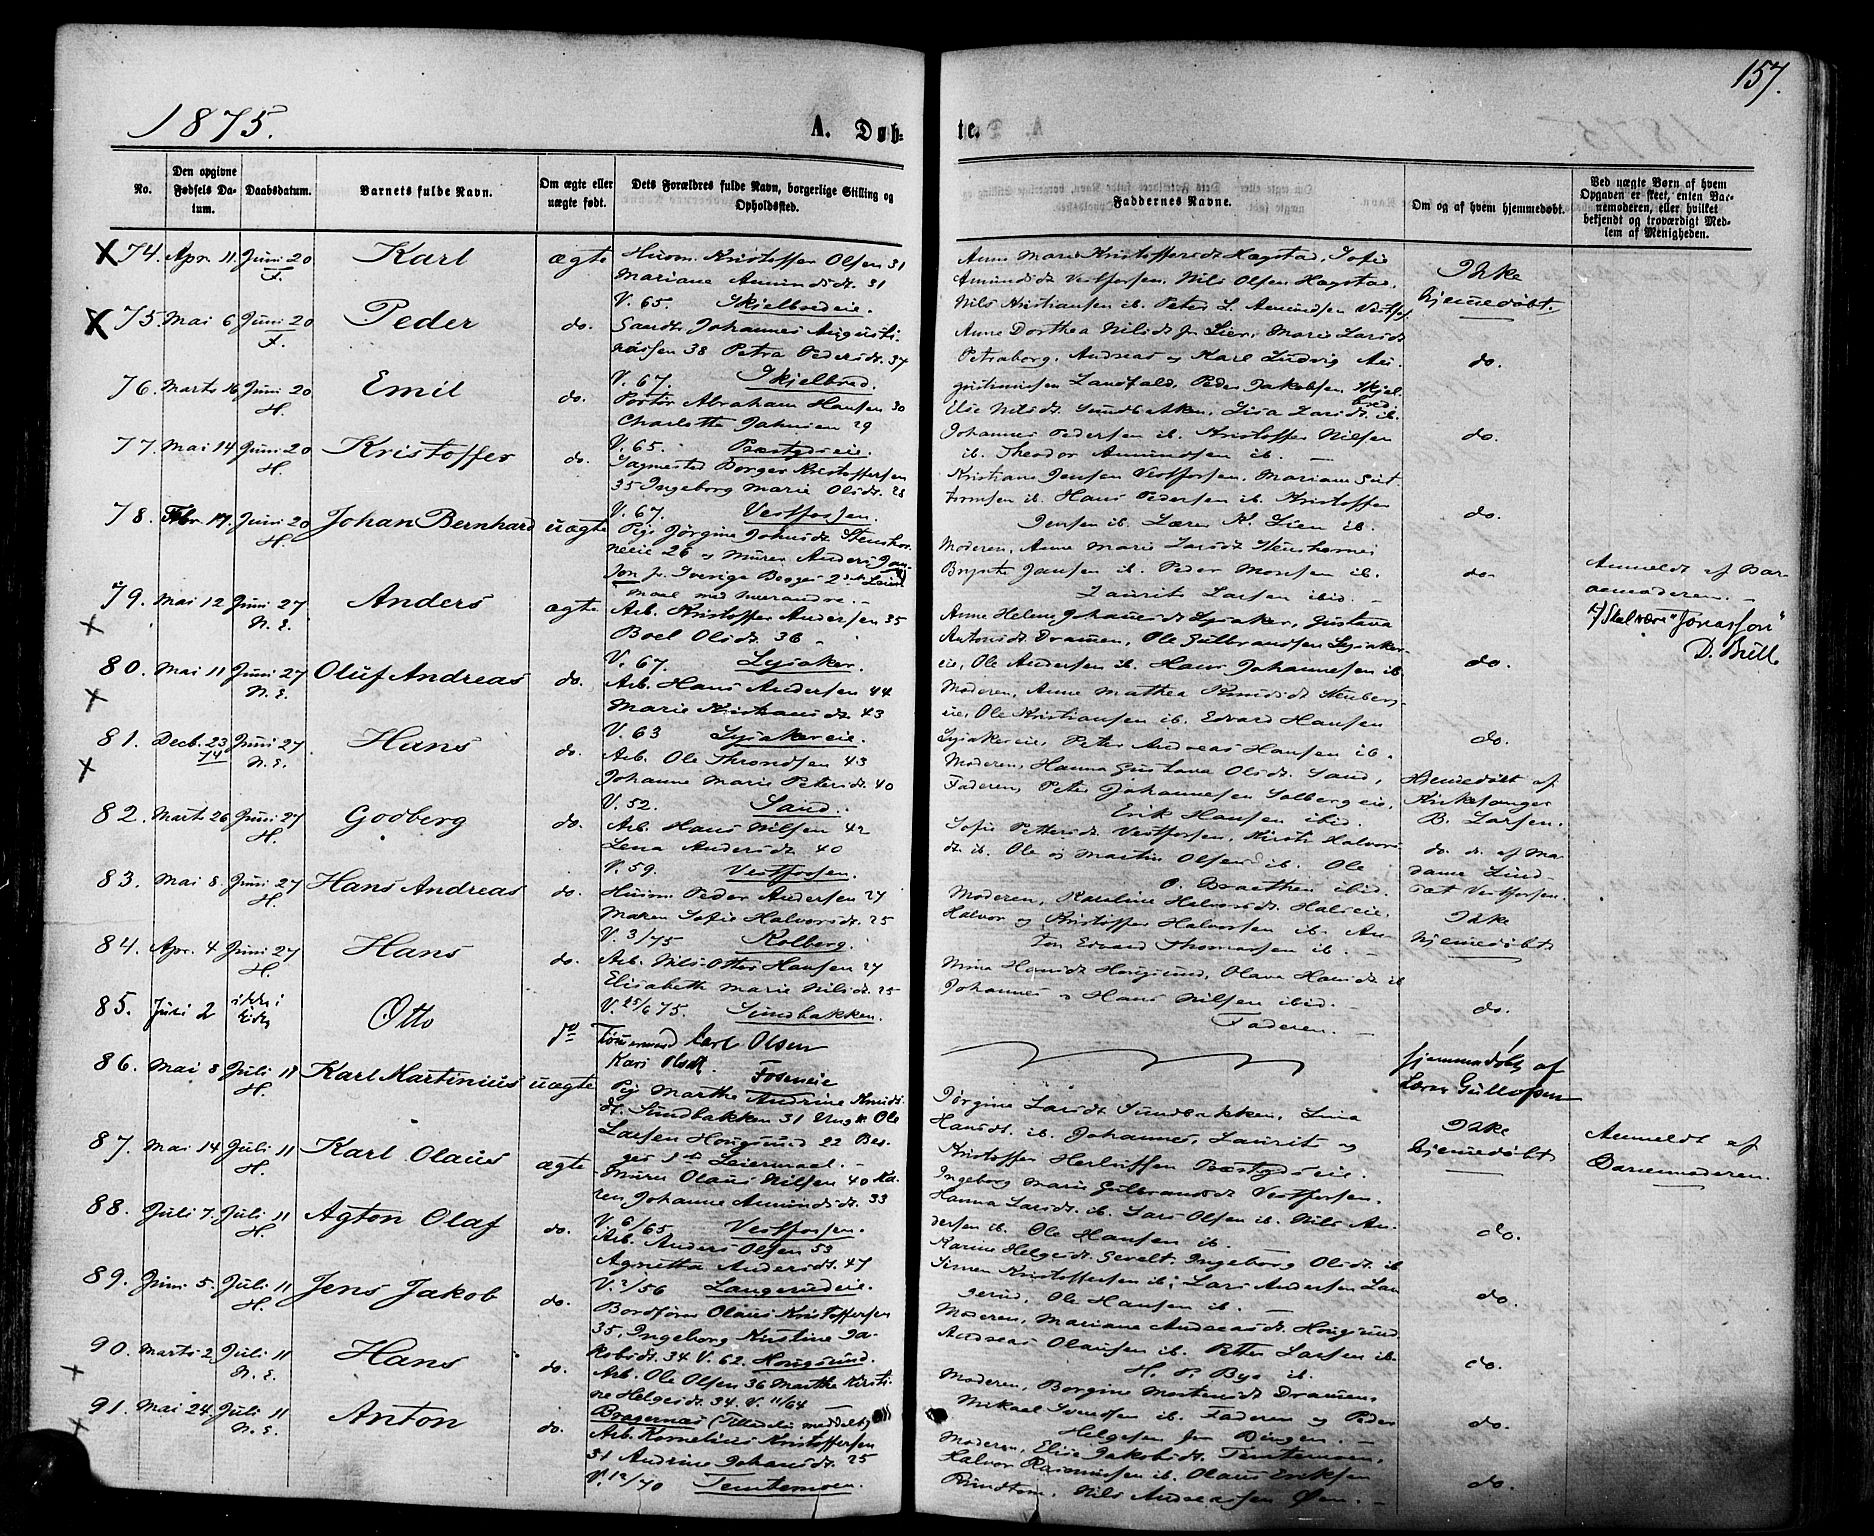 157.
1875.
A. Døb-
te.
No.
Den opgivne Fødsels Da-tum.
Daabsdatum.
Barnets fulde Navn.
Om ægte eller uægte født.
Dets Forældres fulde Navn, borgerlige Stilling og Opholdssted.
Faddernes Navne.
Om og af hvem hjemmedøbt.
Ved uægte Børn af hvem Opgaven er skeet, enten Bar-nemoderen, eller hvilket bekjendt og troværdigt Med-lem af Menigheden.
74. Apr. 11. Juni 20 F. Karl ægte
Kristoffer Olsen 31
Mariane Amundsdt. 31
V. 65. Skjelbredeie.
Anne Marie Kristoffersdt Hagstad, Sofie
Amundsdt Vestfossen, Nils Olsen Hagstad,
Nils Kristiansen ib. Peter L. Amundsen
Ikke
hjemmedøbt.
75. Mai 6 Juni 20 F. Peder do.
Johannes Augusti-
nussen 38 Petra Pedersdt. 37
V. 67. Skjelbred.
Anne Dorthea Nilsdt fr Lier, Marie Larsdt
Petraborg, Andreas og Karl Ludvig Au-
gustinussen Landfald, Peder Jakobsen Skjel-
bred.
do.
76. Marts 16 Juni 20 H. Emil do.
Abraham Hansen 30
Charlotte 29
V. 65. Bæstydseie.
Elise Nilsdt. Sundbakken, Lisa Larsdt. ib.
Johannes Pedersen ib. Kristoffer Nilsen
ib. Theodor Amundsen ib.
do.
77. Mai 14 Juni 20 H. Kristoffer do.
Borger Kristoffersen
35 Ingeborg Marie Olsdt. 28
V. 67. Vestfossen.
Kristiane Jensen Vestfossen, Mariane
ib. Hans Pedersen ib. Kristoffer
Jensen ib. Lærer K. Lien ib.
do.
78. Febr. 17. Juni 20 H. Johan Bernhard uægte
Pige Jørgine Johnsdt.
26 og Murer Anders Jan-
son fr. Sverige Begges 2det Leier-
maal med hverandre.
Moderen, Anne Marie Larsdt
Jansen ib. Peder Monsen ib.
Laurits Larsen ibid.
do.
Anmeldt af Bar-
nemoderen.
Skal være "Jonasson"
79. Mai 12 Juni 27 N. E. Anders ægte
Arb. Kristoffer Andersen 35
Boel Olsdt. 36
V. 67. Lysaker.
Anne Helene Johannesdt Lysaker, Gustava
Antonsdt Drammen, Ole Gulbrandsen Lysaker-
eie, Ole Andersen ib. Hans Johannesen ib.
do.
80. Mai 11 Juni 27 N. E. Oluf Andreas do.
Arb. Hans Andersen 44
Marie Kristiansdt. 43
V. 63 Lysakereie.
Moderen, Anne Mathea
eie, Ole Kristiansen ib. Edvard Hansen
Lysakereie, Peter Andreas Hansen ib.
do.
81. Decb. 23 74 Juni 27 N. E. Hans do.
Arb. Ole Throndsen 43
Johanne Marie Petersdt. 40
V. 52. Sand.
Moderen, Hanna Gustava Olsdt. Sand,
Faderen, Peter Johannesen Solbergeie,
Erik Hansen ibid.
Hjemmedøbt af
Kirkesanger
B. Larsen.
82. Marts 26 Juni 27 H. Godberg do.
Arb. Hans Nilsen 42
Lena Andersdt. 40
V. 59. Vestfossen.
Sofie Pettersdt. Vestfossen, Kirsti Halvors-
dt. ib. Ole og Martin Olsen ib. Ole
O. Braathen ibid.
do. af Ma-
dame
Vestfossen.
83. Mai 8. Juni 27 H. Hans Andreas do.
Peder Andersen 27
Maren Sofie Halvorsdt. 25
V. 3/75 Kolberg.
Moderen, Karoline Halvorsdt. Halseie,
Halvor og Kristoffer Halvorsen ib. An-
ton Edvard Thomassen ib.
Ikke
hjemmedøbt
84. Apr. 4 Juni 27 H. Hans do.
Arb. Nils Otter Hansen 27
Elisabeth Marie Nilsdt. 25
V. 25/6 75. Sundbakken.
Mina Hansdt Hougsund, Olava Hansdt ib
Johannes og Hans Nilsen ibid.
Faderen.
do.
85. Juli 2 ikke i Kirke Otto do
Tømmermand Carl Olsen
Kari Olsdt. Foseneie
hjemmedøbt af
Lærer Gullofsen
86. Mai 8 Juli 11 H. Karl Martinius uægte
Pige Marthe Andrine Knuds-
dt. Sundbakken 31 Ungk. Ole
Larsen Hougsund 22 Beg-
ges 1ste Leiermaal.
Jørgine Larsdt. Sundbakken, Lina
Hansdt. ib. Johannes, Laurits og
Kristoffer Herlufsen Bæstydseie.
Ikke
hjemmedøbt
Anmeldt af
Barnemoderen.
87. Mai 14 Juli 11 H. Karl Olaus ægte
Murer Olaus Nilsen 40 Ka-
ren Johanne Amundsdt. 33
V. 6/65 Vestfossen.
Ingeborg Marie Gulbrandsdt Vestfossen.
Hanna Larsdt. ib. Lars Olsen ib. Nils An-
dersen ib. Ole Hansen ib.
do.
88. Juli 7. Juli 11 H. Agton Olaf do.
Arb. Anders Olsen 53
Agnetta Andersdt. 47
V. 2/56 Langerudeie.
Karine Helgesdt. Gevelt, Ingeborg Olsdt. ib
Simen Kristoffersen ib; Lars Andersen Lan-
gerud, Ole Hansen ib.
do.
89. Juni 5. Juli 11 H. Jens Jakob do.
Bordfører Olaus Kristoffersen
35, Ingeborg Kristine Ja-
kobsdt. 34 V. 62. Hougsund.
Moderen, Mariane Andreasdt. Hougsund
Andreas Olausen ib. Petter Larsen ib.
H. P. Bye ib.
do.
90. Marts 2 Juli 11 N. E. Hans do.
Arb. Ole Olsen 36 Marthe Kirsti-
ne Helgesdt. 34. V. 11/64
Bragernæs
Moderen, Borgine Mortensdt Drammen,
Mikael Svendsen ib. Faderen og Peder
Helgesen fra Bingen.
do.
91. Mai 24. Juli 11 N. E. Anton do.
Arb. Kornelius Kristoffersen
31 Andrine Johansdt. 25
V. 12/70 Temtemoen.
Moderen, Elise Jakobsdt. Temtemoen,
Halvor Rasmussen ib. Olaus Eriksen
Nils Andreassen Øen.
do.